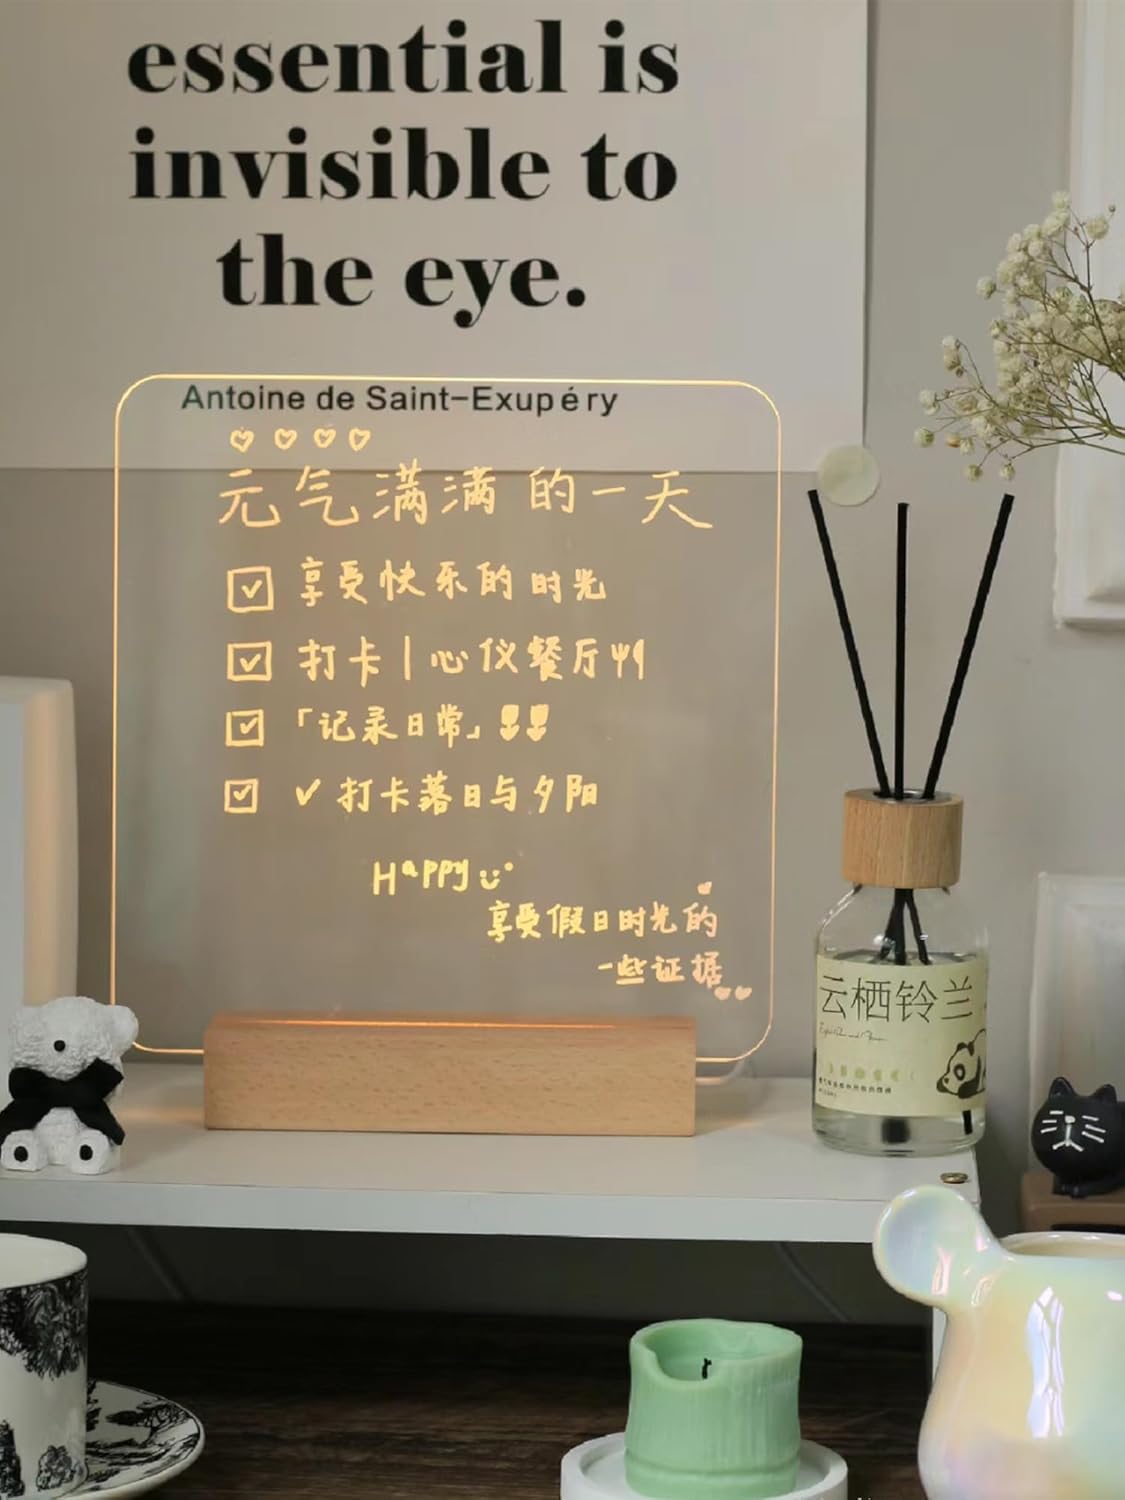 essential is
invisible to
the eye.
Antoine de Saint-Exupéry
元气满满的一天
享受快乐的时光
打卡|心仪餐厅
「记录日常」
✓打卡落日与夕阳
Happy
享受假日时光的
一些证据
云栖铃兰